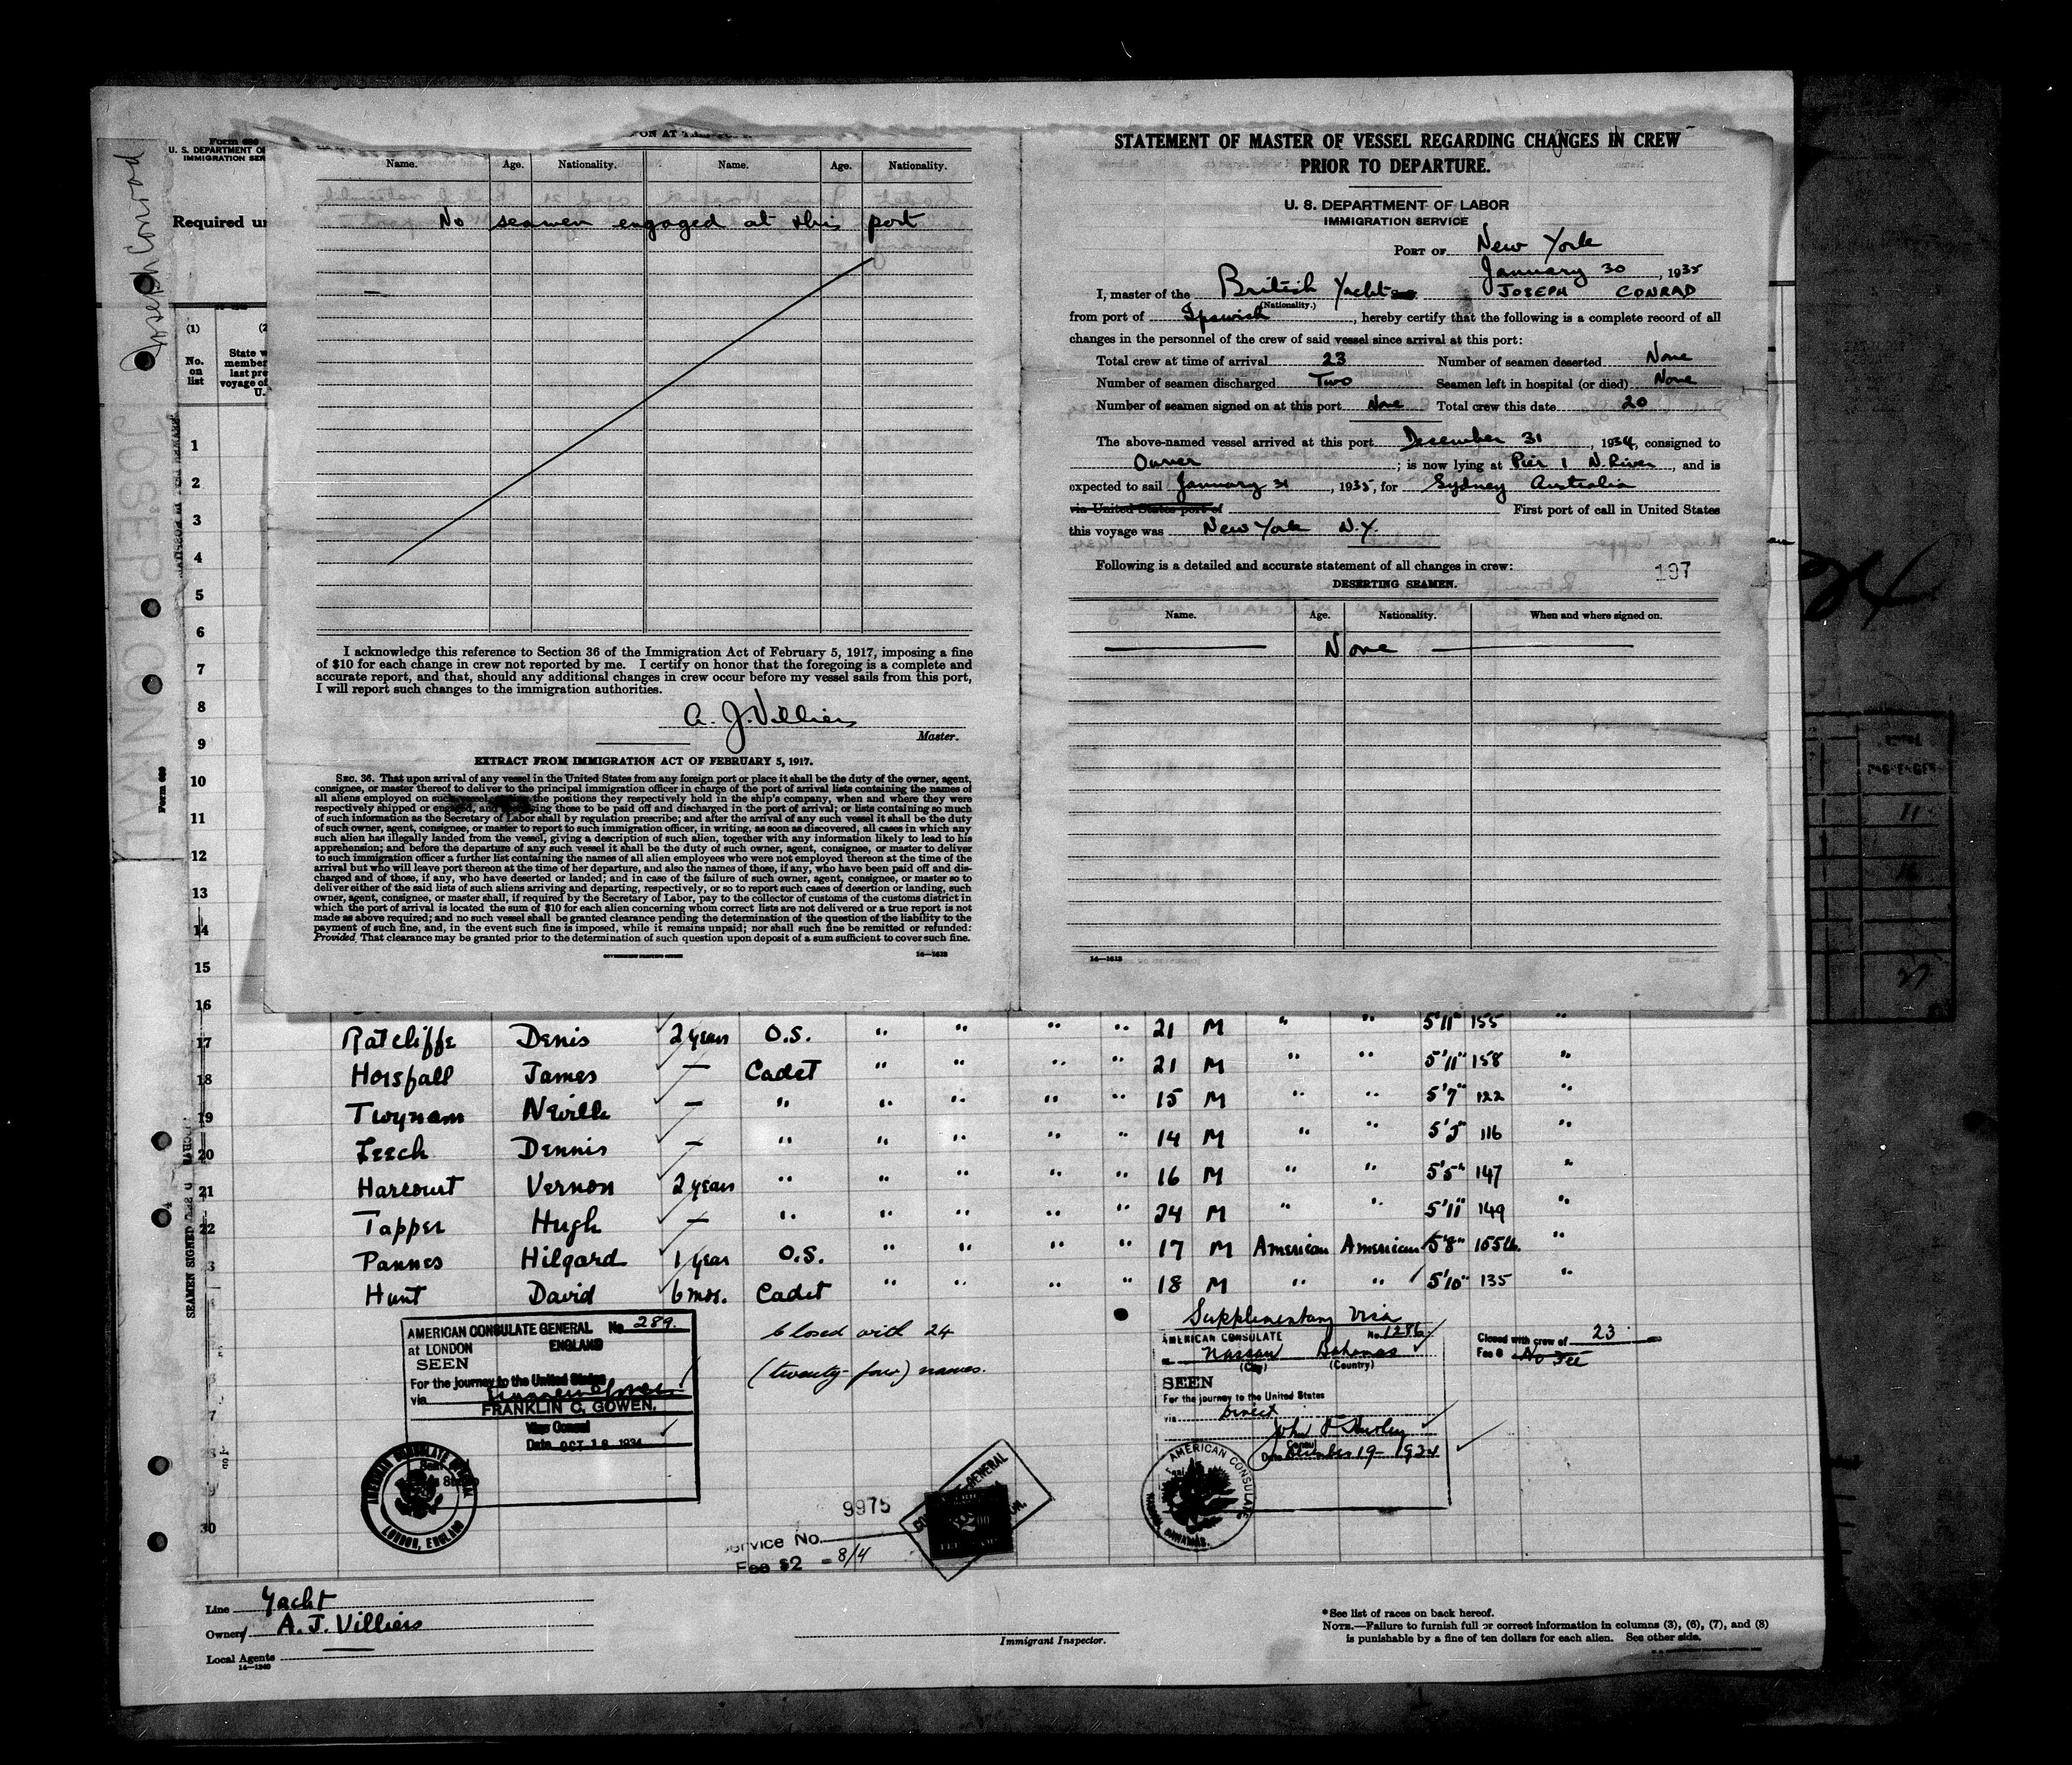 Joseph Conrad
Form 689
U. S. DEPARTMENT O
IMMIGRATION SER
Required un
(1)
No.
on
list
State w
member
last pre
voyage of
U.
JOSEPH CONRAD
Form 689
SEAMEN SIGNED
1
2
3
4
5
6
7
8
9
10
11
12
13
14
15
16
ON AT
Name. Age. Nationality. Name. Age. Nationality.
No seamen engaged at this port
I acknowledge this reference to Section 36 of the Immigration Act of February 5, 1917, imposing a fine
of $10 for each change in crew not reported by me. I certify on honor that the foregoing is a complete and
accurate report, and that, should any additional changes in crew occur before my vessel sails from this port,
I will report such changes to the immigration authorities.
A. J. Villiers
Master.
EXTRACT FROM IMMIGRATION ACT OF FEBRUARY 5, 1917.
SEC. 36. That upon arrival of any vessel in the United States from any foreign port or place it shall be the duty of the owner, agent,
consignee, or master thereof to deliver to the principal immigration officer in charge of the port of arrival lists containing the names of
all aliens employed on such vessel, the positions they respectively hold in the ship's company, when and where they were
respectively shipped or engaged, and those to be paid off and discharged in the port of arrival; or lists containing so much
of such information as the Secretary of Labor shall by regulation prescribe; and after the arrival of any such vessel it shall be the duty
of such owner, agent, consignee, or master to report to such immigration officer, in writing, as soon as discovered, all cases in which any
such alien has illegally landed from the vessel, giving a description of such alien, together with any information likely to lead to his
apprehension; and before the departure of any such vessel it shall be the duty of such owner, agent, consignee, or master to deliver
to such immigration officer a further list containing the names of all alien employees who were not employed thereon at the time of the
arrival but who will leave port thereon at the time of her departure, and also the names of those, if any, who have been paid off and dis-
charged and of those, if any, who have deserted or landed; and in case of the failure of such owner, agent, consignee, or master so to
deliver either of the said lists of such aliens arriving and departing, respectively, or so to report such cases of desertion or landing, such
owner, agent, consignee, or master shall, if required by the Secretary of Labor, pay to the collector of customs of the customs district in
which the port of arrival is located the sum of $10 for each alien concerning whom correct lists are not delivered or a true report is not
made as above required; and no such vessel shall be granted clearance pending the determination of the question of the liability to the
payment of such fine, and, in the event such fine is imposed, while it remains unpaid; nor shall such fine be remitted or refunded:
Provided, That clearance may be granted prior to the determination of such question upon deposit of a sum sufficient to cover such fine.
GOVERNMENT PRINTING OFFICE 14—1613
STATEMENT OF MASTER OF VESSEL REGARDING CHANGES IN CREW
PRIOR TO DEPARTURE.
U. S. DEPARTMENT OF LABOR
IMMIGRATION SERVICE
PORT OF New York
January 30, 1935
I, master of the British Yacht JOSEPH CONRAD
(Nationality.)
from port of Ipswich, hereby certify that the following is a complete record of all
changes in the personnel of the crew of said vessel since arrival at this port:
Total crew at time of arrival 23 Number of seamen deserted None
Number of seamen discharged Two Seamen left in hospital (or died) None
Number of seamen signed on at this port None Total crew this date 20
The above-named vessel arrived at this port December 31, 1934, consigned to
Owner; is now lying at Pier 1 N. River, and is
expected to sail January 31, 1935, for Sydney Australia
via United States port of First port of call in United States
this voyage was New York N.Y.
Following is a detailed and accurate statement of all changes in crew:
197
DESERTING SEAMEN.
Name. Age. Nationality. When and where signed on.
None
14—1613
24
17 Ratcliffe Denis 2 years O.S. " " " " 21 M " " 5'11" 155 "
18 Horsfall James — Cadet " " " " 21 M " " 5'11" 158 "
19 Twynam Neville — " " " " " 15 M " " 5'7" 122 "
20 Leech Dennis — " " " " " 14 M " " 5'5" 116 "
21 Harcourt Vernon 2 years " " " " " 16 M " " 5'5" 147 "
22 Tapper Hugh — " " " " " 24 M " " 5'11" 149 "
3 Pannes Hilgard 1 year O.S. " " " " 17 M American American 5'8" 155 lb. "
Hunt David 6 mos. Cadet " " " " 18 M " " 5'10" 135 "
AMERICAN CONSULATE GENERAL No 289.
at LONDON ENGLAND
SEEN
For the journey to the United States
via
FRANKLIN C. GOWEN,
Vice Consul
Date OCT 18 1934
AMERICAN CONSULATE GENERAL
LONDON, ENGLAND
Closed with 24
(twenty-four) names.
Supplementary Visa
AMERICAN CONSULATE No. 1286
Nassau Bahamas
(City) (Country)
SEEN
For the journey to the United States
via Direct
John Hurley
Consul
Date December 19 1934
AMERICAN CONSULATE
NASSAU, BAHAMAS.
Closed with crew of 23
Fee $ No Fee
30
9975
Service No.
Fee $2 = 8/4
Line Yacht
Owner A. J. Villiers
Local Agents
14—1240
Immigrant Inspector.
*See list of races on back hereof.
NOTE.—Failure to furnish full or correct information in columns (3), (6), (7), and (8)
is punishable by a fine of ten dollars for each alien. See other side.